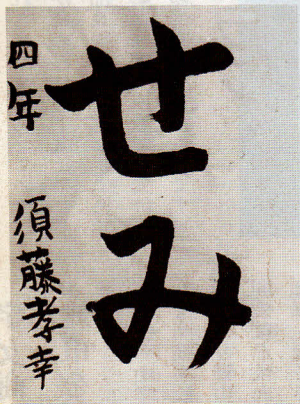 せみ
四年 須藤孝幸